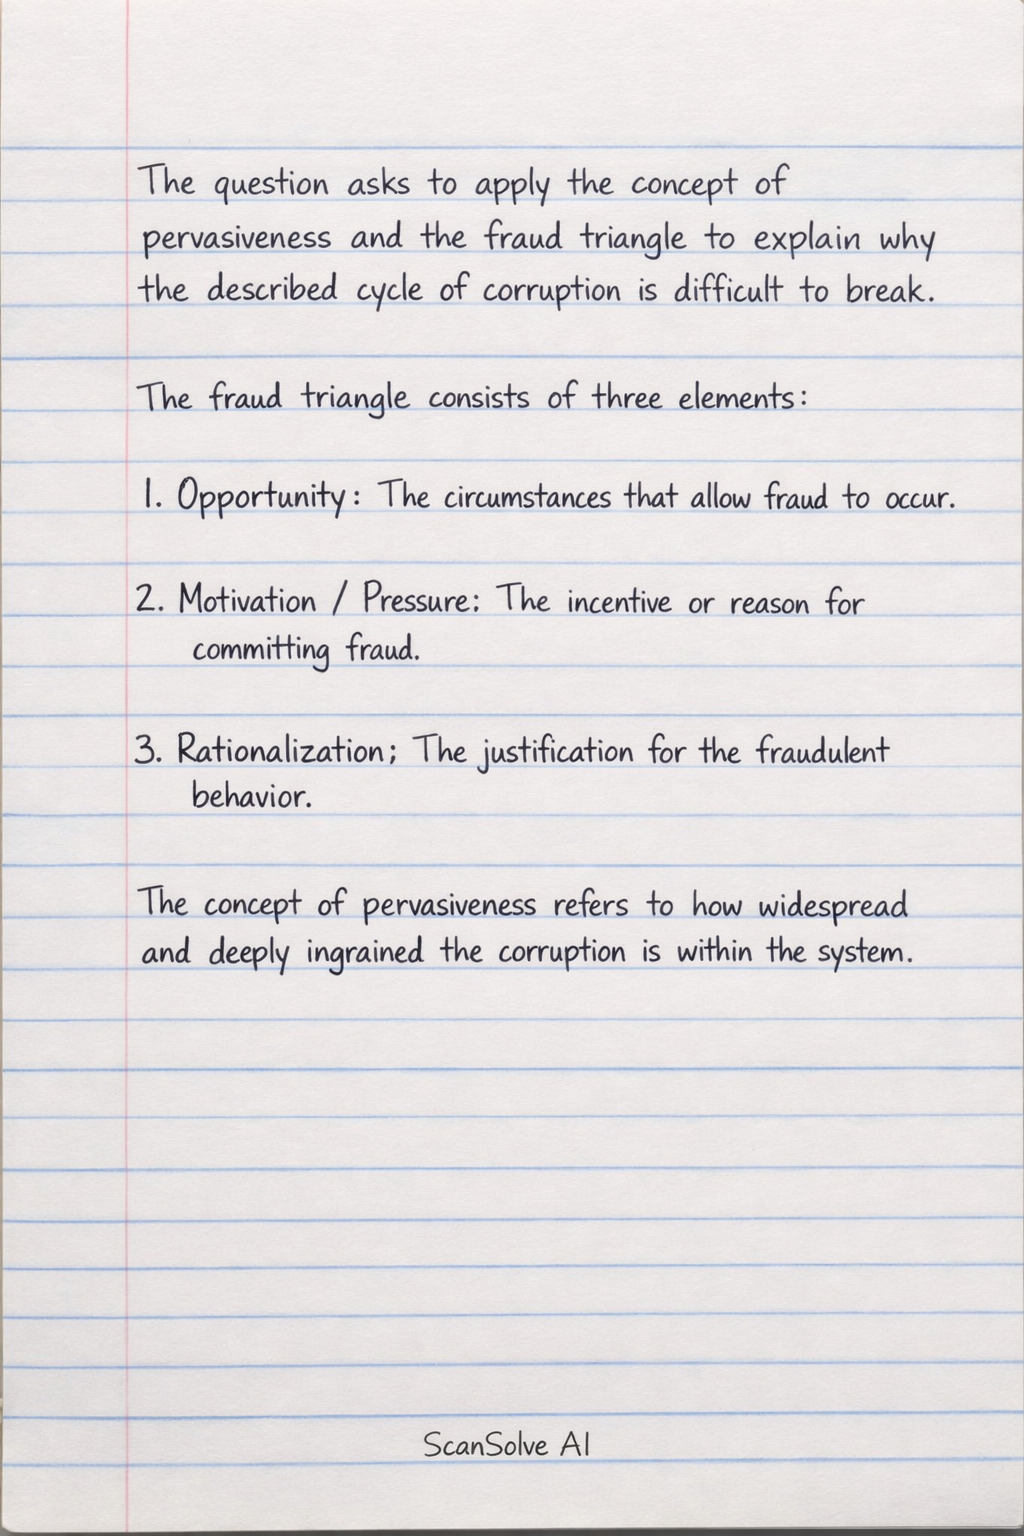 The question asks to apply the concept of
pervasiveness and the fraud triangle to explain why
the described cycle of corruption is difficult to break.
The fraud triangle consists of three elements:
1. Opportunity: The circumstances that allow fraud to occur.
2. Motivation / Pressure: The incentive or reason for
committing fraud.
3. Rationalization; The justification for the fraudulent
behavior.
The concept of pervasiveness refers to how widespread
and deeply ingrained the corruption is within the system.
ScanSolve AI